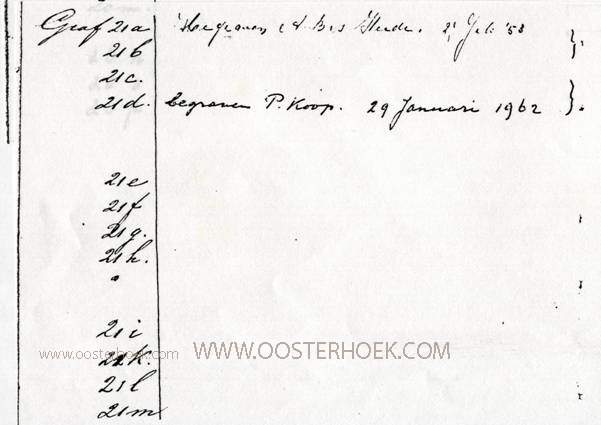 Graf 21a Juli '58
21b
21c.
21d. begraven P. Koop. 29 Januari 1962
21e
21f
21g.
21h.
21i
www.oosterhoek.com WWW.OOSTERHOEK.COM
21k.
21l
21m